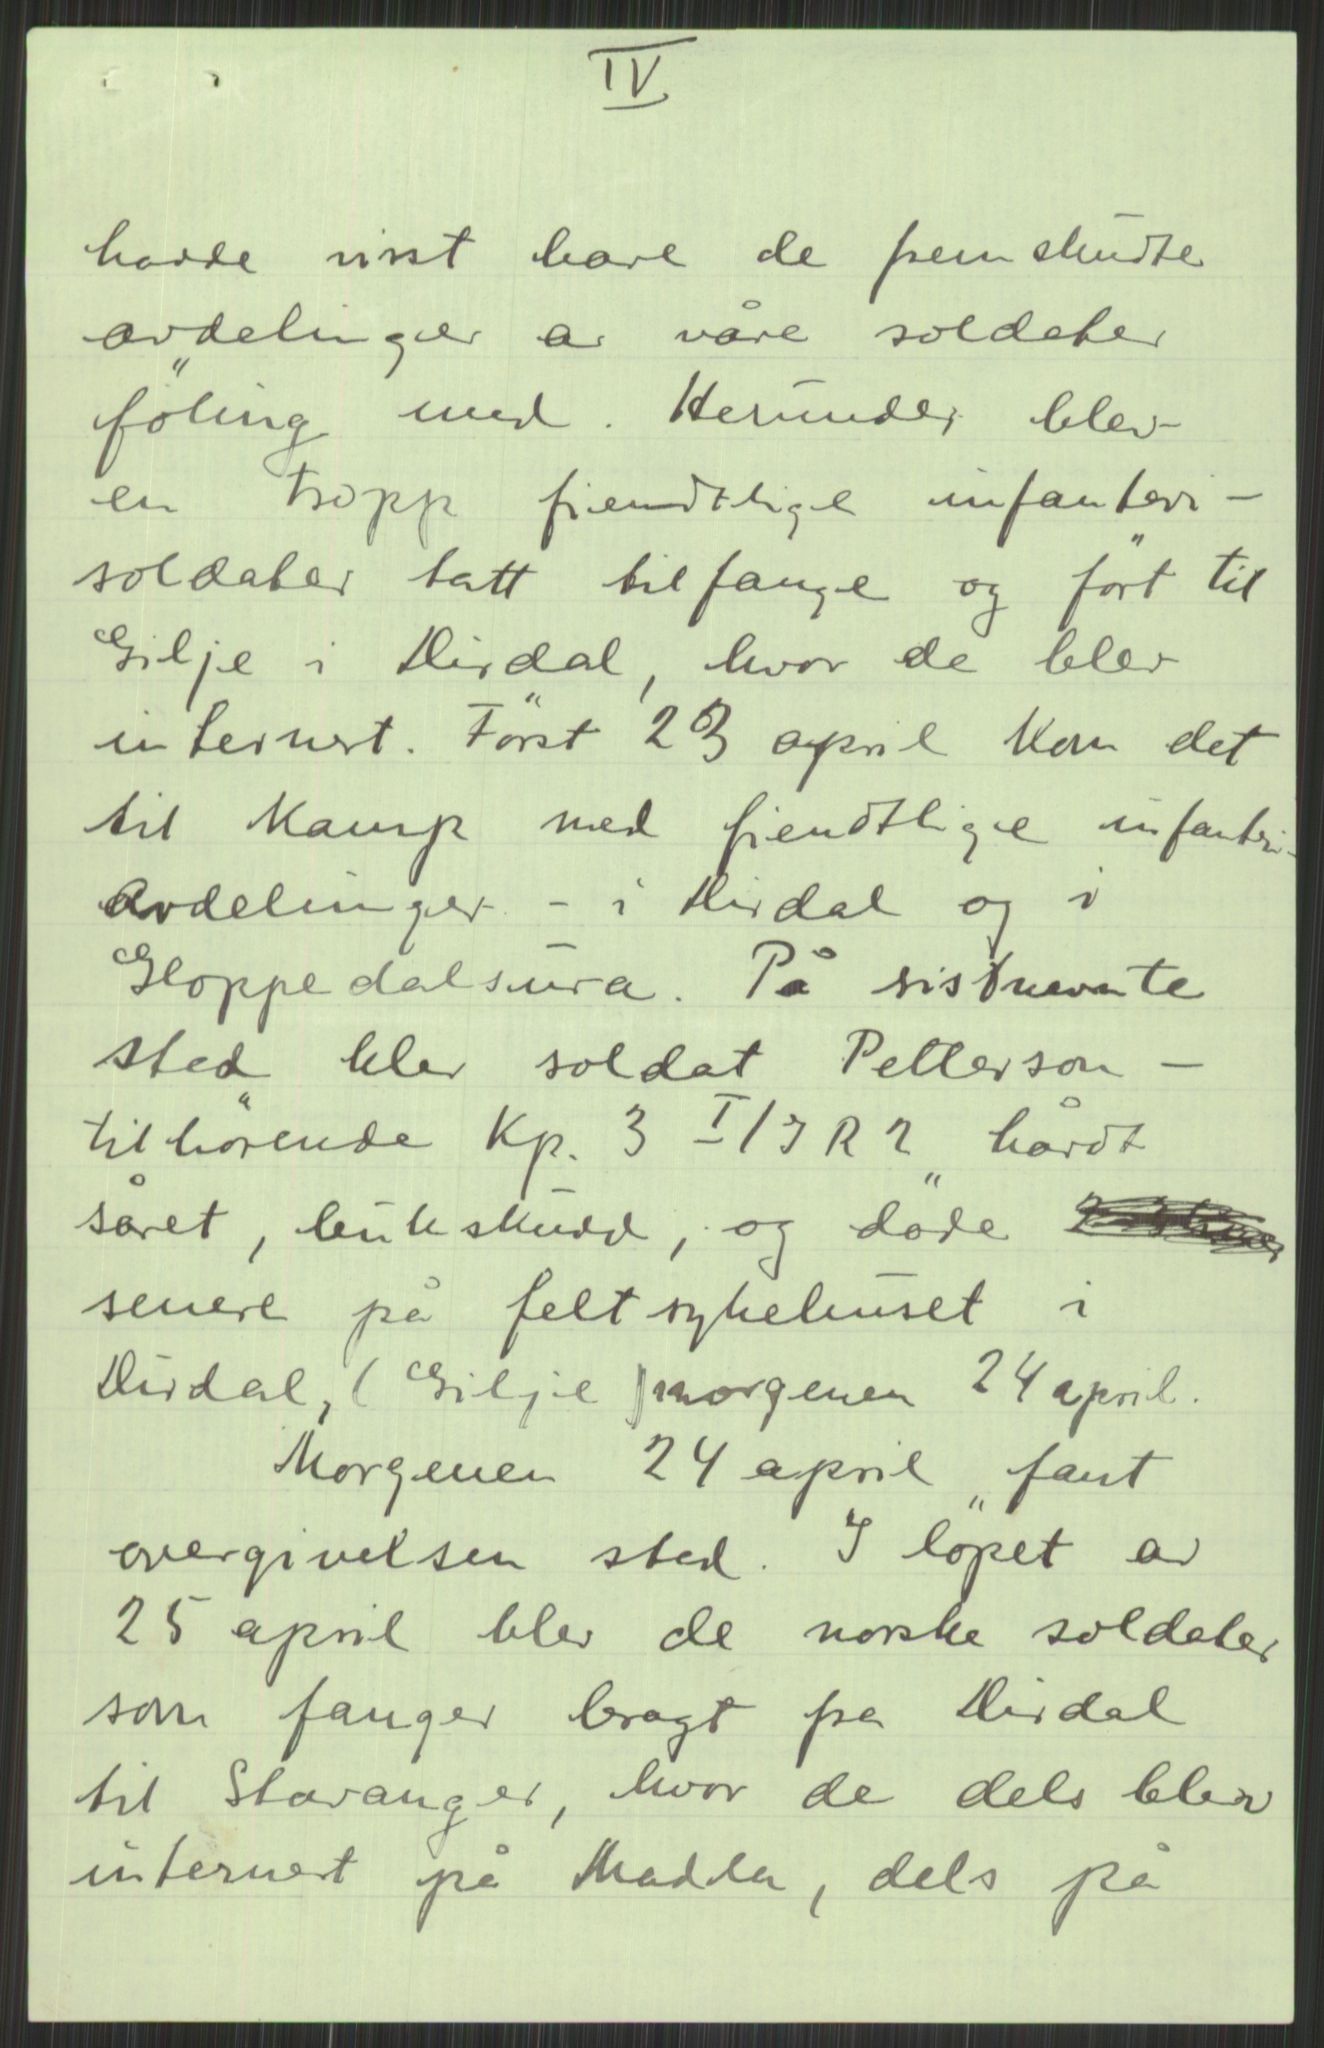 IV
hadde visst bare de fremskudte
avdelinger av våre soldater
föling med. Herunder blev
en tropp fiendtlige infanteri-
soldater tatt tilfange og fört til
Gilje i Dirdal, hvor de blev
internert. Först 23 april kom det
til kamp med fiendtlige infanteri-
avdelinger - i Dirdal og i
Gloppedalsura. På sistnevnte
sted blev soldat Petterson -
tilhörende Kp. 3 I/IR 2 hårdt
såret, bukskudd, og döde
senere på feltsykehuset i
Dirdal, (Gilje) morgenen 24 april.
Morgenen 24 april fant
overgivelsen sted. I löpet av
25 april blev de norske soldater
som fanger bragt fra Dirdal
til Stavanger, hvor de dels blev
internert på Madla, dels på